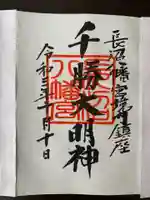 長沼八幡宮境内鎮座
千勝大明神
令和三年十一月十日